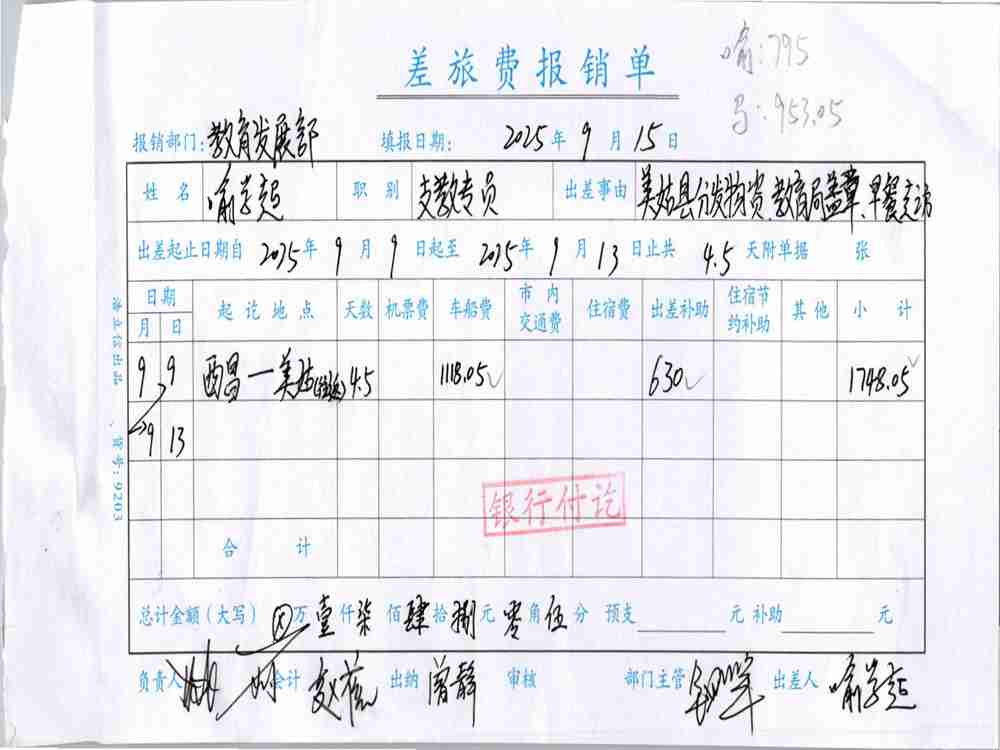 差旅费报销单
喻:795
马:953.05
报销部门: 教育发展部 填报日期: 2025年9月15日
姓名 喻学超 职别 支教专员 出差事由 美姑县分发物资、教育局盖章、早餐走访
出差起止日期自2025年9月9日起至2025年9月13日止共4.5天附单据 张
日期 月 日 起讫地点 天数 机票费 车船费 市内交通费 住宿费 出差补助 住宿节约补助 其他 小计
9 9 西昌—美姑(往返) 4.5 1118.05 630 1748.05
→9 13
银行付讫
合计
总计金额(大写) ⊗万壹仟柒佰肆拾捌元零角伍分 预支 元 补助 元
负责人 会计 出纳 曾静 审核 部门主管 出差人 喻学超
货号:9203